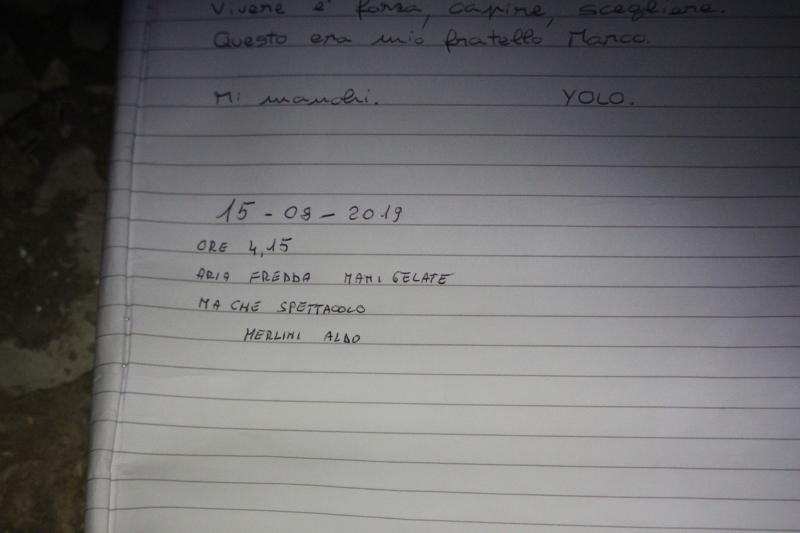 Vivere è forza, capire, scegliere.
Questo era mio fratello Marco.
Mi manchi. YOLO.
15-09-2019
ORE 4,15
ARIA FREDDA MANI GELATE
MA CHE SPETTACOLO
MERLINI ALDO